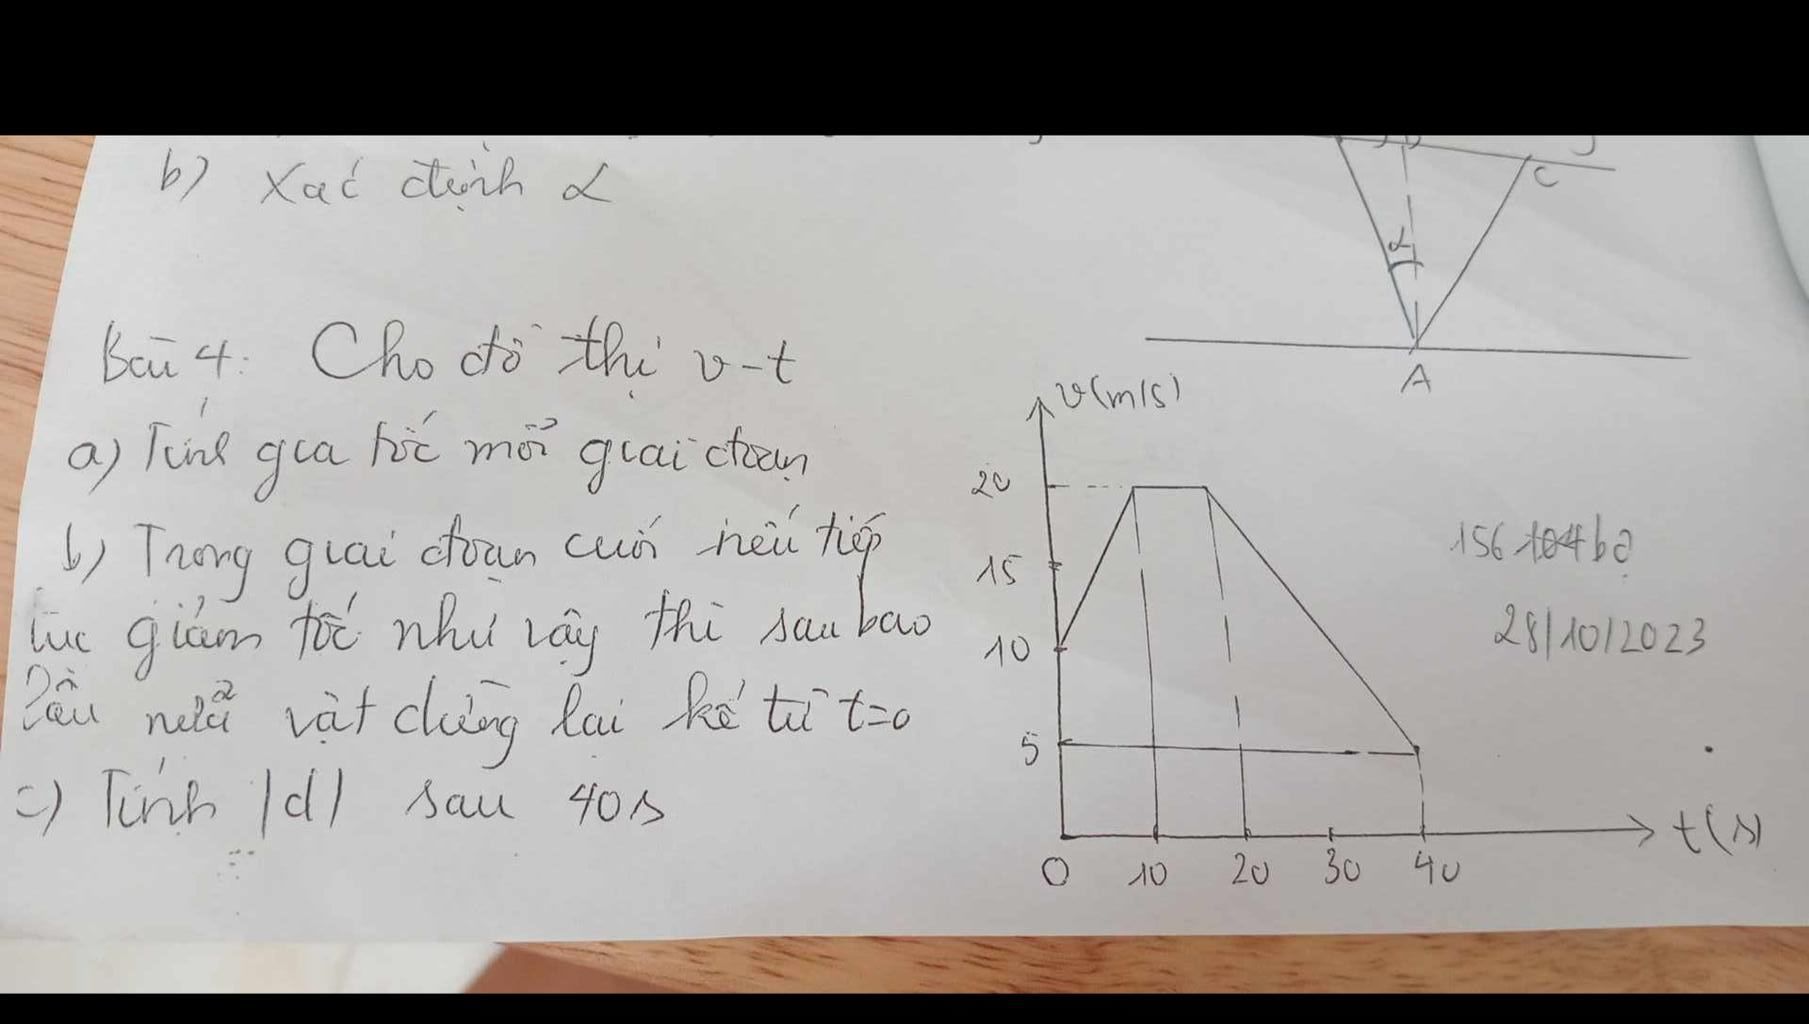 b) Xác định α
C
α
A
Bài 4: Cho đồ thị v-t
a) Tính gia tốc mỗi giai đoạn
b) Trong giai đoạn cuối nếu tiếp
tục giảm tốc như vậy thì sau bao
lâu nữa vật dừng lại kể từ t=0
c) Tính |d| sau 40s
v(m/s)
20
15
10
5
0 10 20 30 40 t(s)
28/10/2023